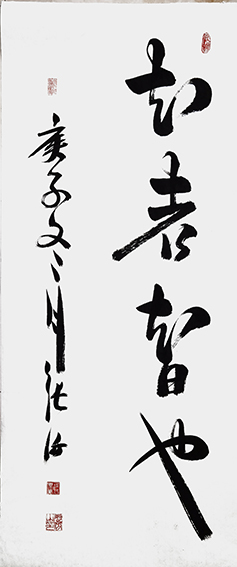 知者智也
庚子冬月張海